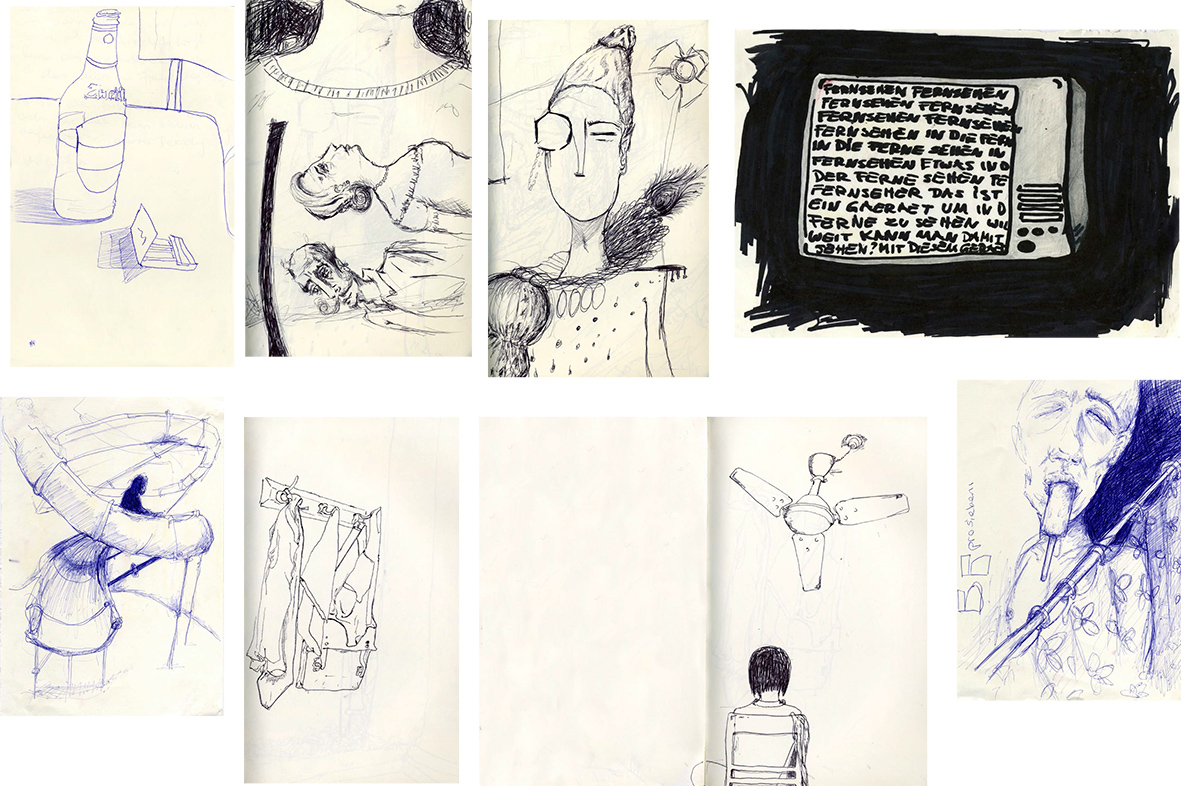 FERNSEHEN FERNSEHEN
FERNSEHEN FERNSEHEN
FERNSEHEN FERNSEHEN
FERNSEHEN IN DIE FERN
IN DIE FERNE SEHEN IN
FERNSEHEN ETWAS IN D
DER FERNE SEHEN FE
FERNSEHER DAS IST
EIN GAERAET UM IN D
FERNE ZU SEHEN WIE
WEIT KANN MAN DAMIT
SEHEN? MIT DIESEM
prosieben